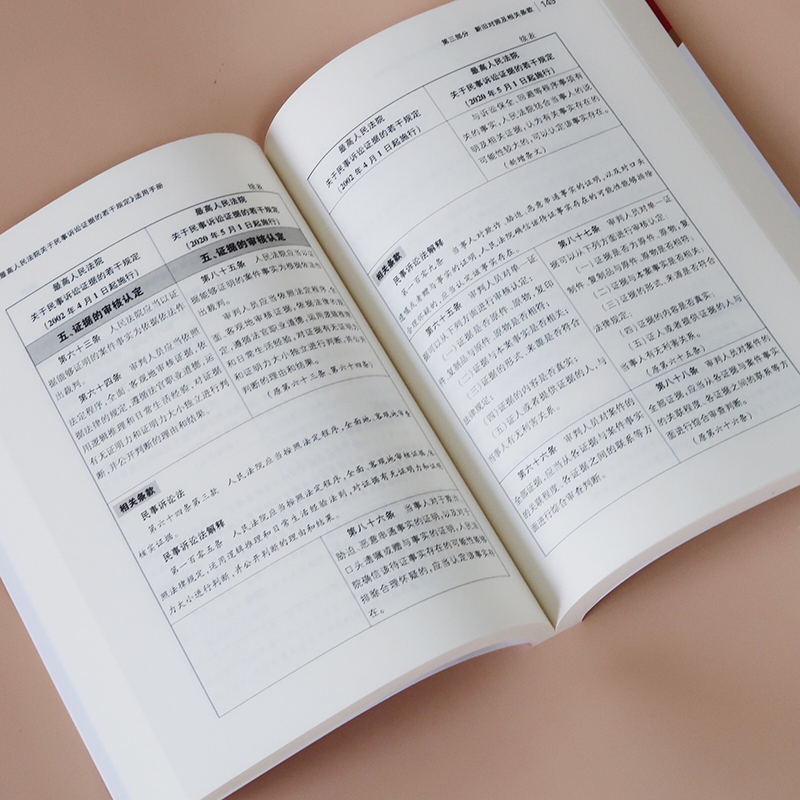 最高人民法院关于民事诉讼证据的若干规定》适用手册
续表
最高人民法院
关于民事诉讼证据的若干规定
(2002 年 4 月 1 日起施行)
最高人民法院
关于民事诉讼证据的若干规定
(2020 年 5 月 1 日起施行)
五、证据的审核认定
五、证据的审核认定
第六十三条 人民法院应当以证
据能够证明的案件事实为依据依法作
出裁判。
第六十四条 审判人员应当依照
法定程序,全面、客观地审核证据,依
据法律的规定,遵循法官职业道德,运
用逻辑推理和日常生活经验,对证据
有无证明力和证明力大小独立进行判
断,并公开判断的理由和结果。
第八十五条 人民法院应当以证
据能够证明的案件事实为根据依法作
出裁判。
审判人员应当依照法定程序,全
面、客观地审核证据,依据法律的规
定,遵循法官职业道德,运用逻辑推理
和日常生活经验,对证据有无证明力
和证明力大小独立进行判断,并公开
判断的理由和结果。
(原第六十三条、第六十四条)
相关条款
民事诉讼法
第六十四条第三款 人民法院应当按照法定程序,全面地、客观地审查
核实证据。
民事诉讼法解释
第一百零五条 人民法院应当按照法定程序,全面、客观地审核证据,依
照法律规定,运用逻辑推理和日常生活经验法则,对证据有无证明力和证明
力大小进行判断,并公开判断的理由和结果。
第八十六条 当事人对于欺诈、
胁迫、恶意串通事实的证明,以及对于
口头遗嘱或赠与事实的证明,人民法
院确信该待证事实存在的可能性能够
排除合理怀疑的,应当认定该事实存
在。
第三部分 新旧对照及相关条款
145
续表
最高人民法院
关于民事诉讼证据的若干规定
(2002 年 4 月 1 日起施行)
最高人民法院
关于民事诉讼证据的若干规定
(2020 年 5 月 1 日起施行)
与诉讼保全、回避等程序事项有
关的事实,人民法院结合当事人的说
明及相关证据,认为有关事实存在的
可能性较大的,可以认定该事实存在。
(新增条文)
相关条款
民事诉讼法解释
第一百零九条 当事人对欺诈、胁迫、恶意串通事实的证明,以及对口头
遗嘱或者赠与事实的证明,人民法院确信该待证事实存在的可能性能够排除
合理怀疑的,应当认定该事实存在。
第六十五条 审判人员对单一证
据可以从下列方面进行审核认定:
(一)证据是否原件、原物,复印
件、复制品与原件、原物是否相符;
(二)证据与本案事实是否相关;
(三)证据的形式、来源是否符合
法律规定;
(四)证据的内容是否真实;
(五)证人或者提供证据的人,与
当事人有无利害关系。
第八十七条 审判人员对单一证
据可以从下列方面进行审核认定:
(一)证据是否为原件、原物,复
制件、复制品与原件、原物是否相符;
(二)证据与本案事实是否相关;
(三)证据的形式、来源是否符合
法律规定;
(四)证据的内容是否真实;
(五)证人或者提供证据的人与
当事人有无利害关系。
(原第六十五条)
第六十六条 审判人员对案件的
全部证据,应当从各证据与案件事实
的关联程度、各证据之间的联系等方
面进行综合审查判断。
第八十八条 审判人员对案件的
全部证据,应当从各证据与案件事实
的关联程度、各证据之间的联系等方
面进行综合审查判断。
(原第六十六条)